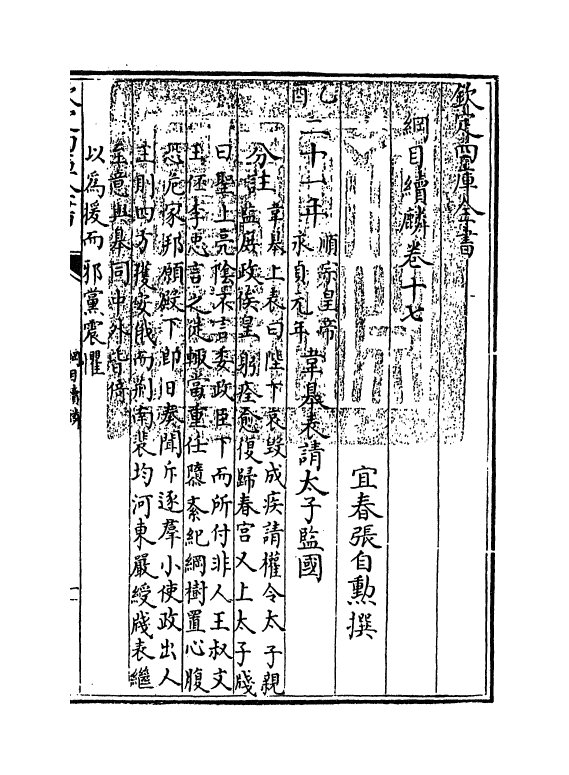 欽定四庫全書
綱目續麟卷十七
宜春張自勲撰
乙酉二十一年順宗皇帝永貞元年韋臯表請太子監國
分註韋臯上表曰陛下哀毀成疾請權令太子親
監庶政俟皇躬痊愈復歸春宫又上太子牋
曰聖上亮陰不言委政臣下而所付非人王叔文
王伾李忠言之徒輙當重任隳紊紀綱樹置心腹
恐危家邦願殿下即日奏聞斥逐羣小使政出人
主則四方獲安俄而荆南裴均河東嚴綬牋表繼
至意與臯同中外皆倚
以為援而邪黨震懼